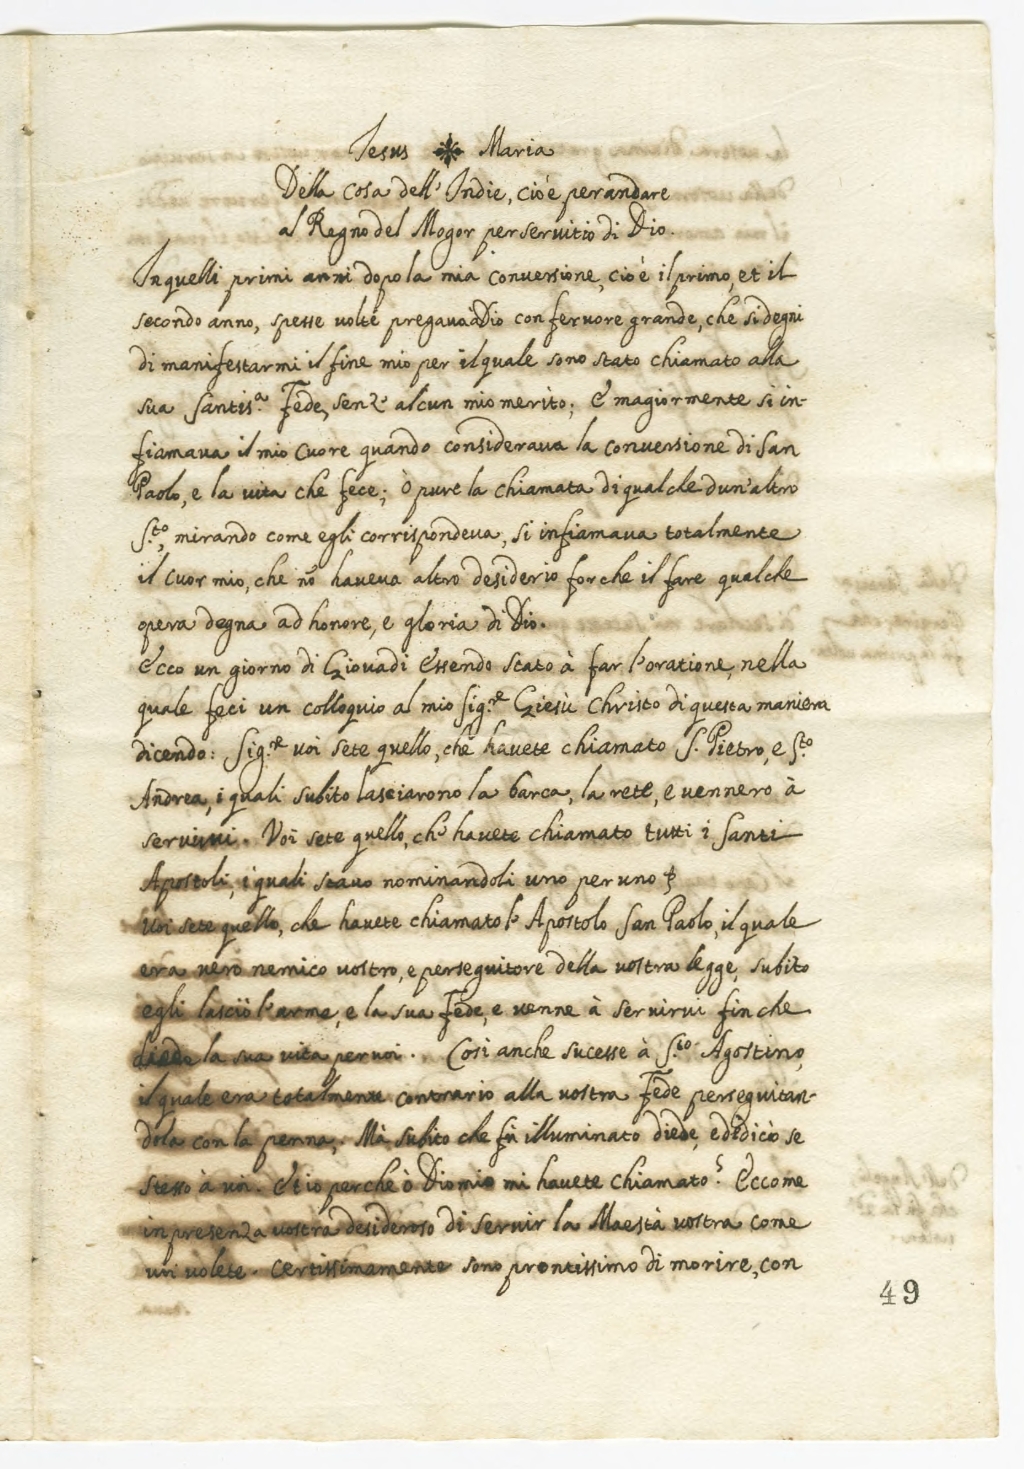 Jesus ✣ Maria
Della cosa dell'Indie, cioè per andare
al Regno del Mogor per servitio di Dio.
In quelli primi anni dopo la mia conversione, cioè il primo, et il
secondo anno, spesse volte pregava à Dio con fervore grande, che si degni
di manifestarmi il fine mio per il quale sono stato chiamato alla
sua Santis.ª Fede, senz' alcun mio merito; E magiormente si in-
fiamava il mio cuore quando considerava la conversione di San
Paolo, e la vita che fece; ò pure la chiamata di qualche dun'altro
S.to, mirando come egli corrispondeva, si infiamava totalmente
il cuor mio, che nō haveva altro desiderio for che il fare qualche
opera degna ad honore, e gloria di Dio.
Ecco un giorno di Giovadi Essendo stato à far l'oratione, nella
quale feci un colloquio al mio Sig.re Giesù Christo di questa maniera
dicendo: Sig.re voi sete quello, che havete chiamato S. Pietro, e S.to
Andrea, i quali subito lasciarono la barca, la rete, e vennero à
servirvi. Voi sete quello, ch' havete chiamato tutti i Santi
Apostoli, i quali stavo nominandoli uno per uno
Voi sete quello, che havete chiamato l'Apostolo San Paolo, il quale
era vero nemico vostro, e perseguitore della vostra legge, subito
egli lasciò l'arme, e la sua Fede, e venne à servirvi fin che
diede la sua vita per voi. Così anche sucesse à S.to Agostino,
il quale era totalmente contrario alla vostra Fede perseguitan-
dola con la penna, Mà subito che fù illuminato diede, e didicò se
stesso à voi. Et io perche ò Dio mio mi havete chiamato? Eccome
in presenza vostra desideroso di servir la Maestà vostra come
voi volete. Certissimamente sono prontissimo di morire, con
49